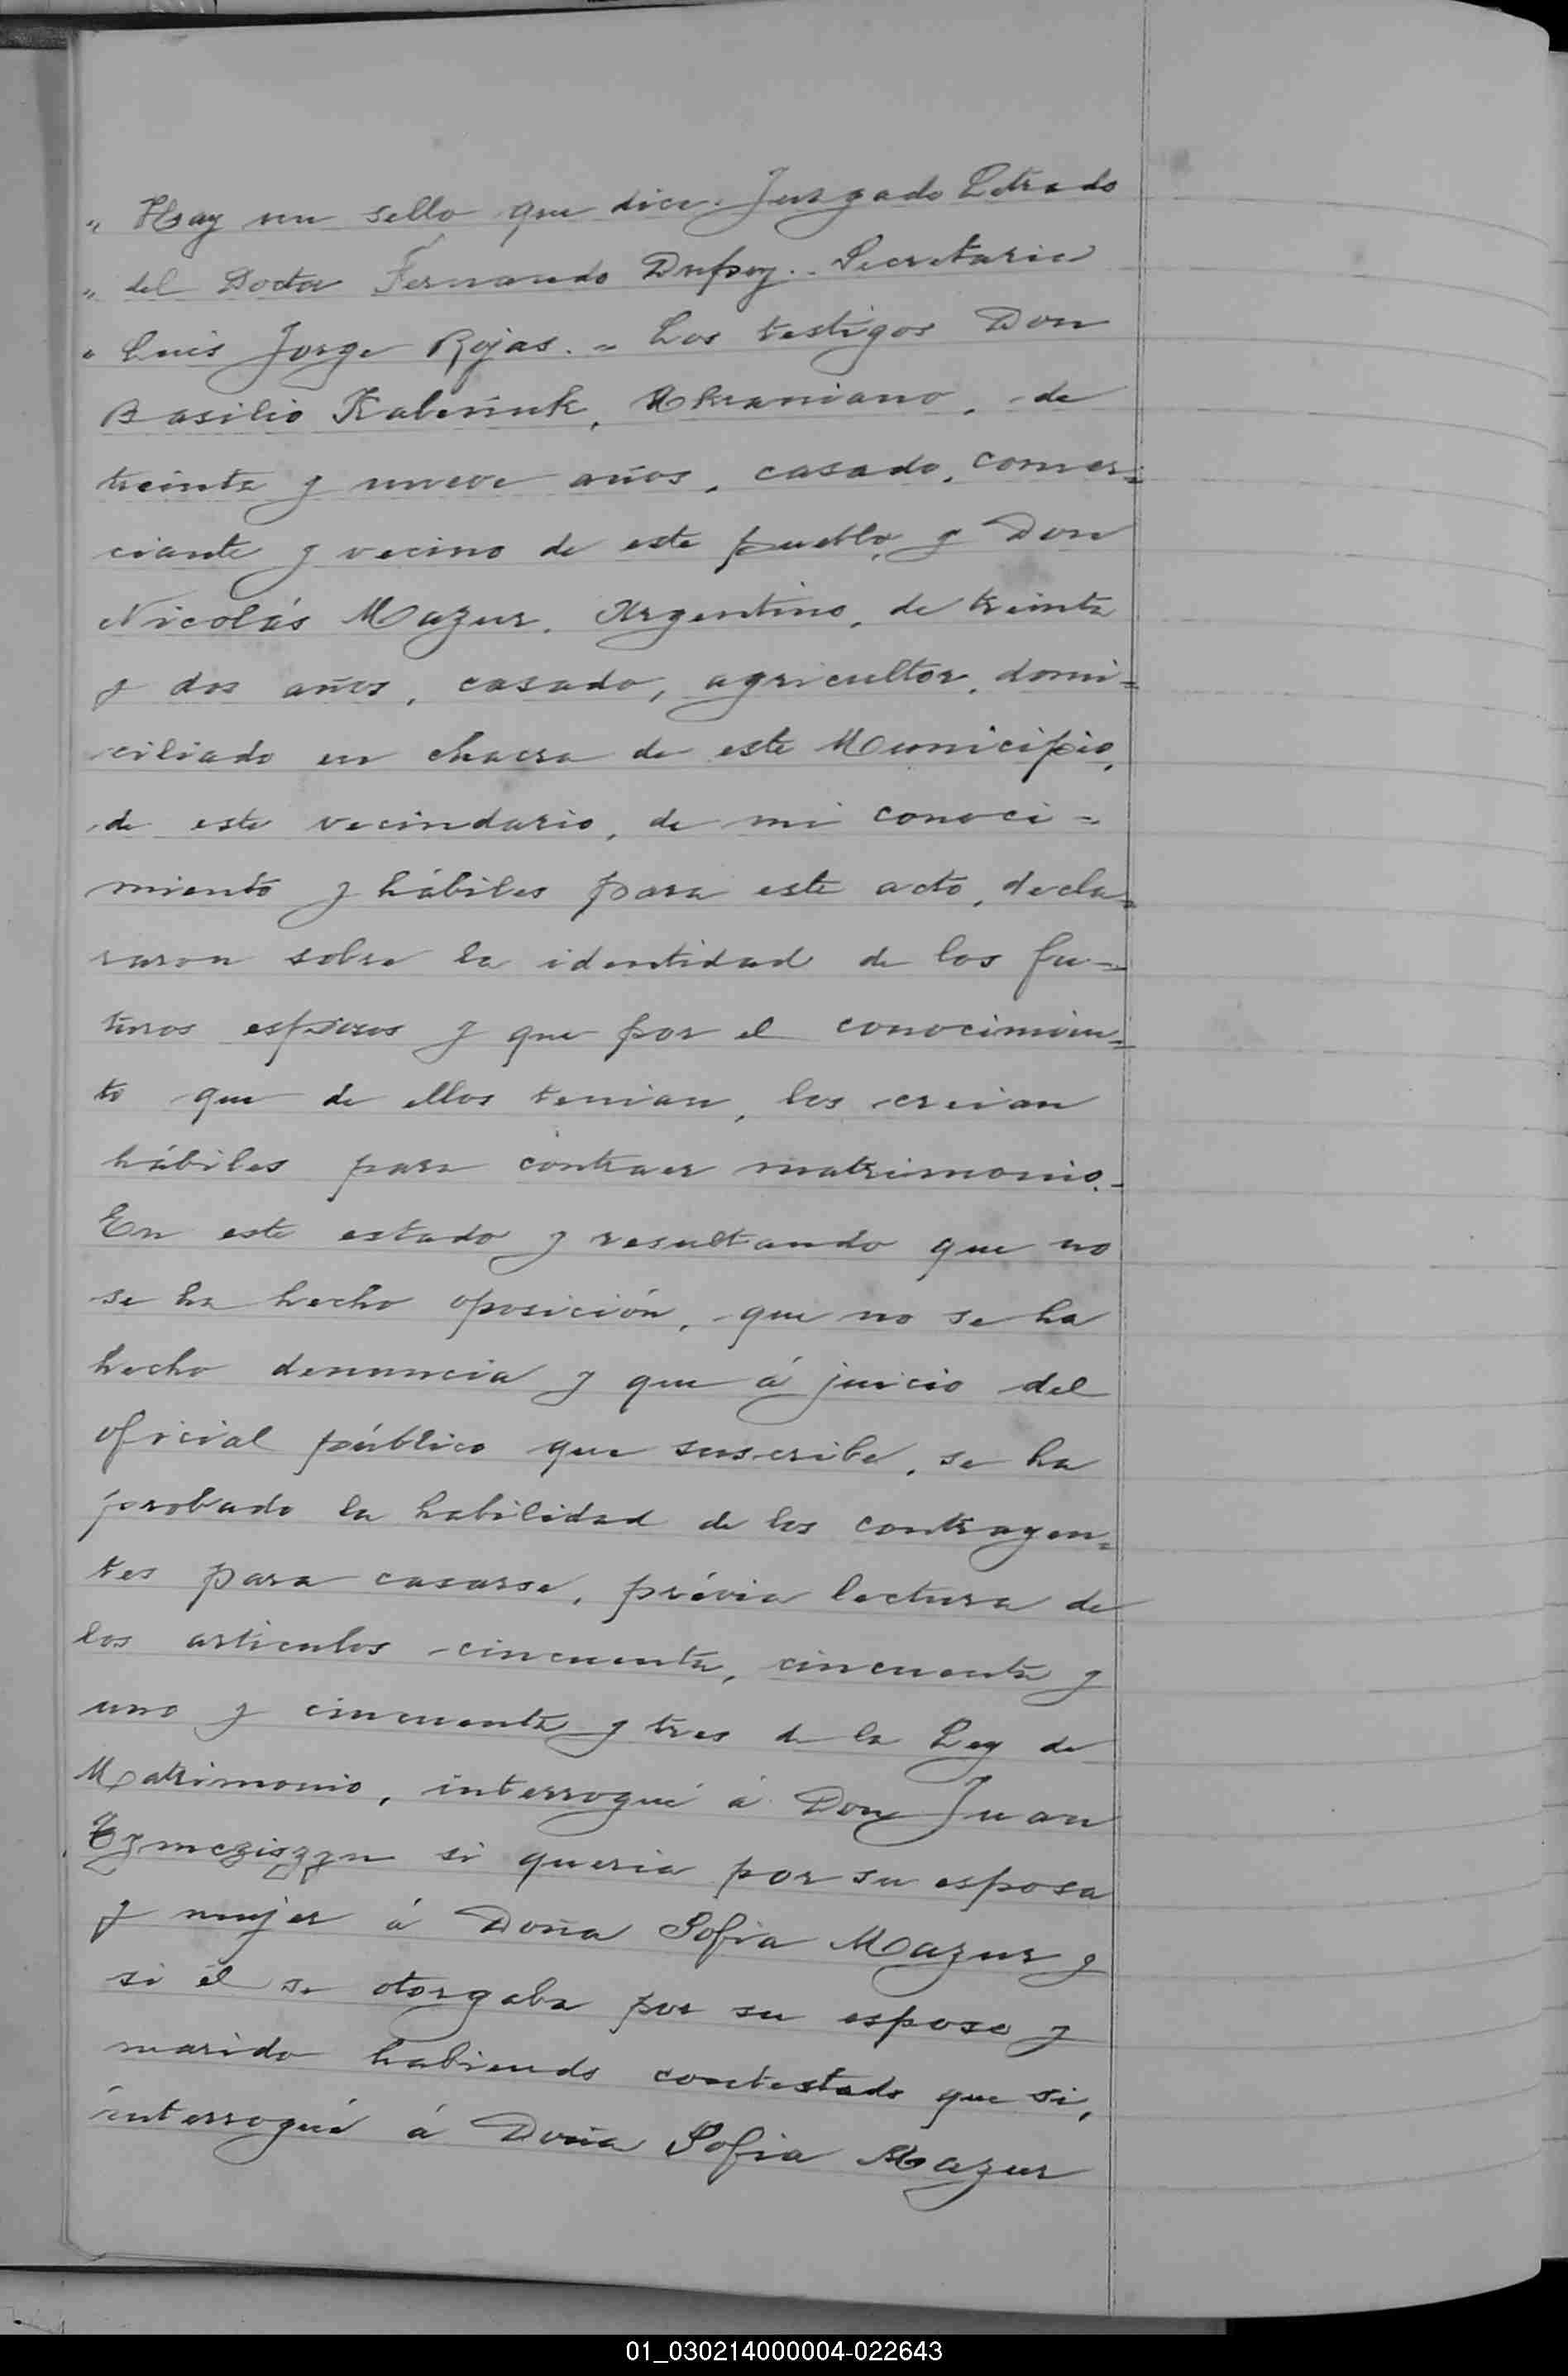 " Hay un sello que dice. Juzgado Letrado
" del Doctor Fernando Dupuy.- Secretaria
" Luis Jorge Rojas.= Los testigos Don
Basilio Kaberiuk, Ukraniano, de
treinta y nueve años, casado, comer=
ciante y vecino de este pueblo y Don
Nicolás Mazur, Argentino, de treinta
y dos años, casado, agricultor, domi=
ciliado en chacra de este Municipio,
de este vecindario, de mi conoci=
miento y hábiles para este acto, decla=
raron sobre la identidad de los fu=
turos esposos y que por el conocimien=
to que de ellos tenian, los creian
hábiles para contraer matrimonio.-
En este estado y resultando que no
se ha hecho oposición, que no se ha
hecho denuncia y que á juicio del
oficial público que suscribe, se ha
probado la habilidad de los contrayen=
tes para casarse, prévia lectura de
los articulos cincuenta, cincuenta y
uno y cincuenta y tres de la Ley de
Matrimonio, interrogué á Don Juan
si queria por su esposa
y mujer á Doña Sofia Mazur y
si él se otorgaba por su esposo y
marido habiendo contestado que si,
interrogué á Doña Sofia Mazur
01_030214000004-022643